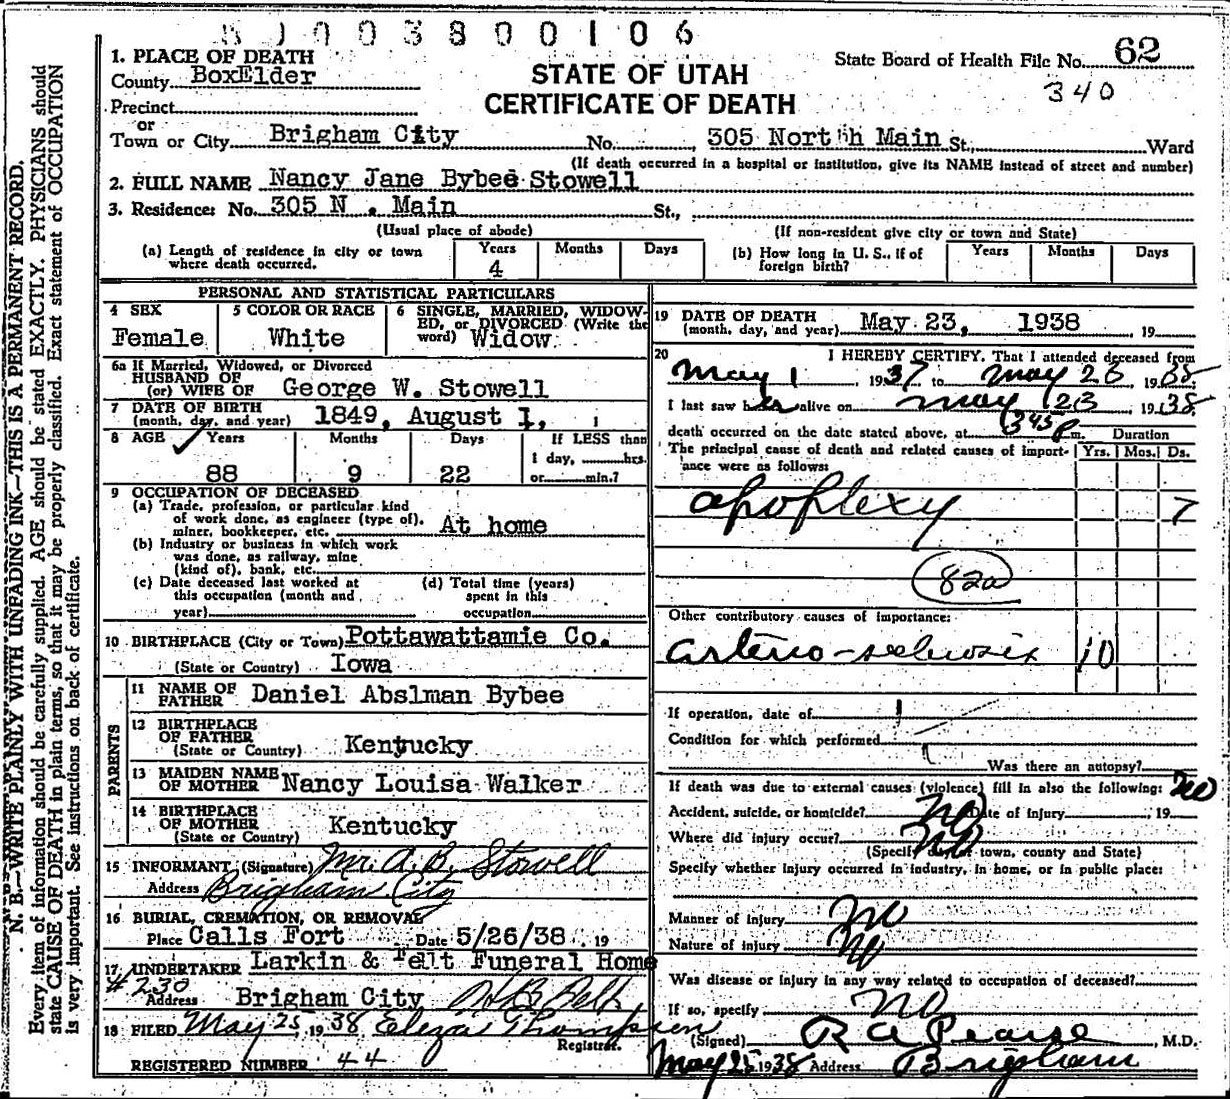 0 0 3 8 0 0 1 0 6
1. PLACE OF DEATH
County BoxElder
STATE OF UTAH
CERTIFICATE OF DEATH
State Board of Health File No. 62
340
Precinct
or
Town or City Brigham City No. 305 North Main St., Ward
(If death occurred in a hospital or institution, give its NAME instead of street and number)
2. FULL NAME Nancy Jane Bybee Stowell
3. Residence: No. 305 N . Main St.,
(Usual place of abode) (If non-resident give city or town and State)
(a) Length of residence in city or town where death occurred. Years 4 Months Days
(b) How long in U. S., if of foreign birth? Years Months Days
PERSONAL AND STATISTICAL PARTICULARS
4 SEX Female
5 COLOR OR RACE White
6 SINGLE, MARRIED, WIDOWED, or DIVORCED (Write the word) Widow
6a If Married, Widowed, or Divorced
HUSBAND OF
(or) WIFE OF George W. Stowell
7 DATE OF BIRTH
(month, day, and year) 1849, August 1,
8 AGE Years 88 Months 9 Days 22
If LESS than
1 day, hrs.
or min.?
9 OCCUPATION OF DECEASED
(a) Trade, profession, or particular kind
of work done, as engineer (type of),
miner, bookkeeper, etc. At home
(b) Industry or business in which work
was done, as railway, mine
(kind of), bank, etc.
(c) Date deceased last worked at
this occupation (month and
year)
(d) Total time (years)
spent in this
occupation
10 BIRTHPLACE (City or Town) Pottawattamie Co.
(State or Country) Iowa
PARENTS
11 NAME OF
FATHER Daniel Abslman Bybee
12 BIRTHPLACE
OF FATHER
(State or Country) Kentucky
13 MAIDEN NAME
OF MOTHER Nancy Louisa Walker
14 BIRTHPLACE
OF MOTHER
(State or Country) Kentucky
15 INFORMANT (Signature) Mr. A. B. Stowell
Address Brigham City
16 BURIAL, CREMATION, OR REMOVAL
Place Calls Fort Date 5/26/38 19
17 UNDERTAKER Larkin & Felt Funeral Home
#230
Address Brigham City H B Felt
18 FILED May 25, 1938 Eleza Thompson
Registrar.
REGISTERED NUMBER 44
19 DATE OF DEATH
(month, day, and year) May 23, 1938 19
20 I HEREBY CERTIFY, That I attended deceased from
May 1 1937 to May 23 1938
I last saw her alive on May 23 1938
death occurred on the date stated above, at 3 45 P m. Duration
The principal cause of death and related causes of importance were as follows: Yrs. Mos. Ds.
apoplexy 7
82a
Other contributory causes of importance:
arterio-sclerosis 10
If operation, date of
Condition for which performed
Was there an autopsy? no
If death was due to external causes (violence) fill in also the following:
Accident, suicide, or homicide? No Date of injury , 19
Where did injury occur? No
(Specify city or town, county and State)
Specify whether injury occurred in industry, in home, or in public place:
Manner of injury No
Nature of injury No
Was disease or injury in any way related to occupation of deceased?
If so, specify NO
(Signed) R A Pearse, M.D.
May 25 1938 Address Brigham
N. B.—WRITE PLAINLY WITH UNFADING INK—THIS IS A PERMANENT RECORD.
Every item of information should be carefully supplied. AGE should be stated EXACTLY. PHYSICIANS should
state CAUSE OF DEATH in plain terms, so that it may be properly classified. Exact statement of OCCUPATION
is very important. See instructions on back of certificate.